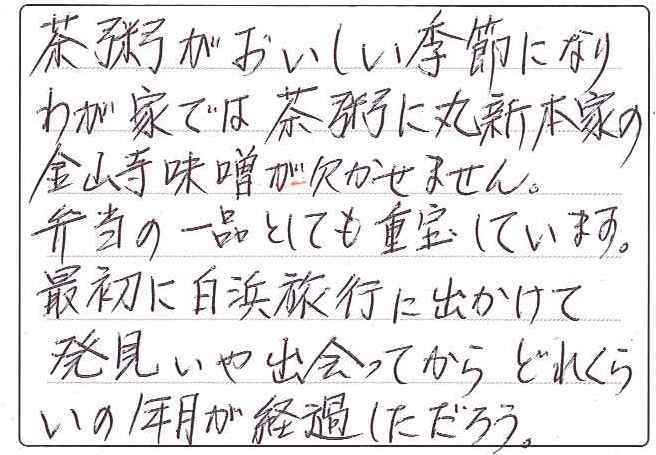 茶粥がおいしい季節になり
わが家では茶粥に丸新本家の
金山寺味噌が欠かせません。
弁当の一品としても重宝しています。
最初に白浜旅行に出かけて
発見いや出会ってからどれくら
いの年月が経過しただろう。